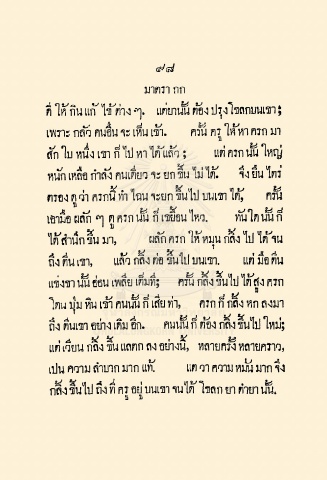 ๙๘
มาตรา กก
ดี ให้ กิน แก้ ไข้ ต่าง ๆ. แต่ยานั้น ต้อง ปรุง โขลกบนเขา;
เพราะ กลัว คนอื่น จะ เห็น เข้า. ครั้น ครู ให้ หา ครก มา
สัก ใบ หนึ่ง เขา ก็ ไป หา ได้ แล้ว; แต่ ครก นั้น ใหญ่
หนัก เหลือ กำลัง คนเดียว จะ ยก ขึ้น ไม่ ได้. จึง ยืน ไตร่
ตรอง ดู ว่า ครกนี้ ทำ ไฉน จะยก ขึ้นไป บนเขา ได้, ครั้น
เอามือ ผลัก ๆ ดู ครก นั้น ก็ เขยื้อน ไหว. ทันใด นั้น ก็
ได้ สำนึก ขึ้น มา, ผลัก ครก ให้ หมุน กลิ้ง ไป ได้ จน
ถึง ตีน เขา, แล้ว กลิ้ง ต่อ ขึ้นไป บนเขา. แต่ มือ ตีน
แข้งขา นั้น อ่อน เพลีย เต็มที; ครั้น กลิ้ง ขึ้นไป ได้ สูง ครก
โดน ปุ่ม หิน เข้า คนนั้น ก็ เสีย ท่า, ครก ก็ กลิ้ง ตก ลงมา
ถึง ตีนเขา อย่าง เดิม อีก. คนนั้น ก็ ต้อง กลิ้ง ขึ้นไป ใหม่;
แต่ เวียน กลิ้ง ขึ้น แลตก ลง อย่างนี้, หลายครั้ง หลายคราว,
เปน ความ ลำบาก มาก แท้. แต่ ว่า ความ หมั่น มาก จึง
กลิ้ง ขึ้นไป ถึง ที่ ครู อยู่ บนเขา จนได้ โขลก ยา ตำยา นั้น.